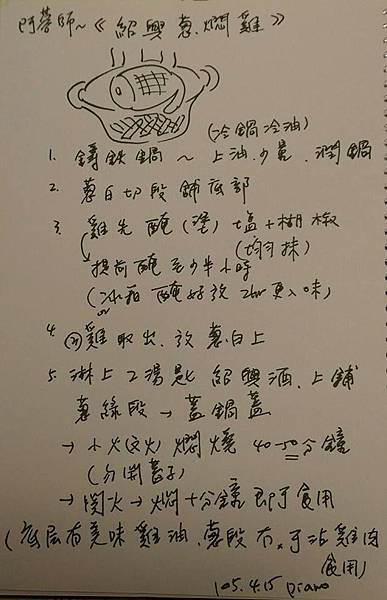 阿蓉師~《紹興蔥燜雞》
(冷鍋冷油)
1. 鑄鐵鍋~上油少量.潤鍋
2. 蔥白切段鋪底部
3. 雞先醃(塗)塩+胡椒
(均勻抹)
提前醃至少半小時
(冰箱醃好放2hr更入味)
4. 雞取出.放蔥白上
5. 淋上2湯匙紹興酒.上鋪
蔥綠段→蓋鍋蓋
→小火(文火)燜燒40-50分鐘
(勿開蓋子)
→関火→燜十分鐘即可食用
(底层有美味雞油.蔥段在.可沾雞肉
食用)
105.4.15 piano